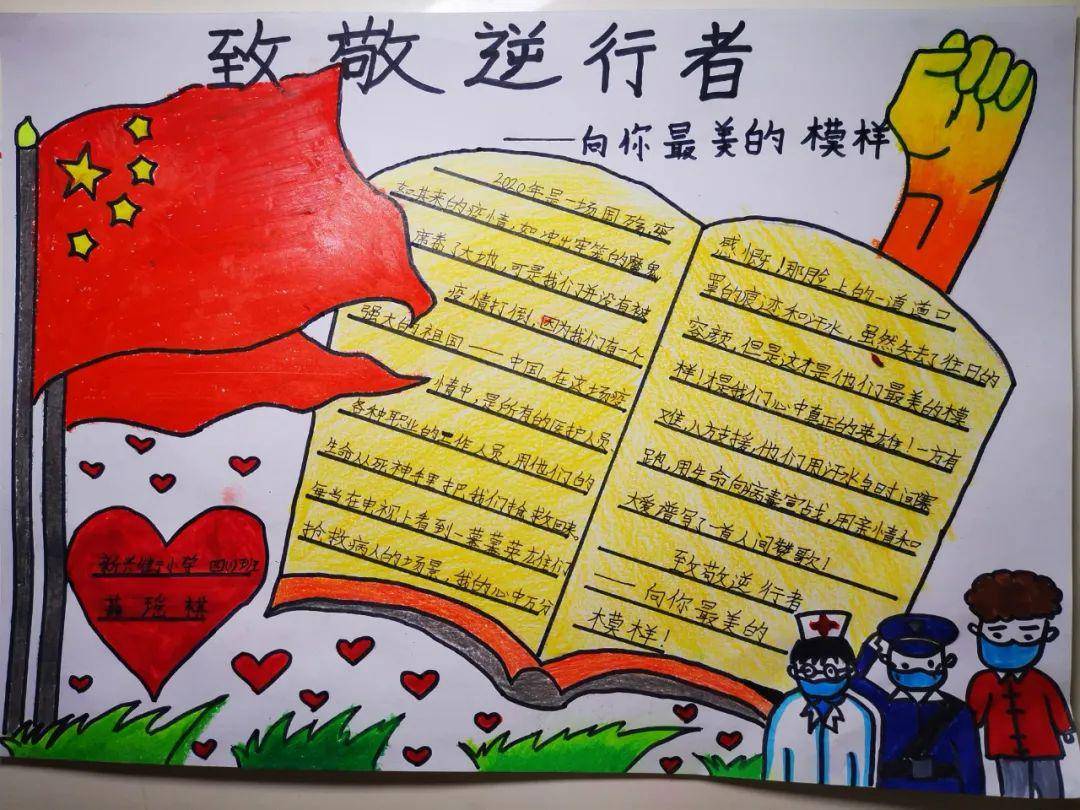 致敬逆行者
——向你最美的模样
2020年是一场国殇,突
如其来的疫情,如冲出牢笼的魔鬼
席卷了大地,可是我们并没有被
疫情打倒,因为我们有一个
强大的祖国——中国。在这场疫
情中,是所有的医护人员
各种职业的工作人员,用他们的
生命从死神手里把我们抢救回来。
每当在电视上看到一幕幕英雄们
抢救病人的场景,我的心中万分
感慨!那脸上的一道道口
罩的痕迹和汗水,虽然失去了往日的
容颜,但是这才是他们最美的模
样!才是我们心中真正的英雄!一方有
难,八方支援,他们用汗水与时间赛
跑,用生命向病毒宣战,用亲情和
大爱谱写了一首人间赞歌!
致敬逆行者
——向你最美的
模样!
小学 四(1)班